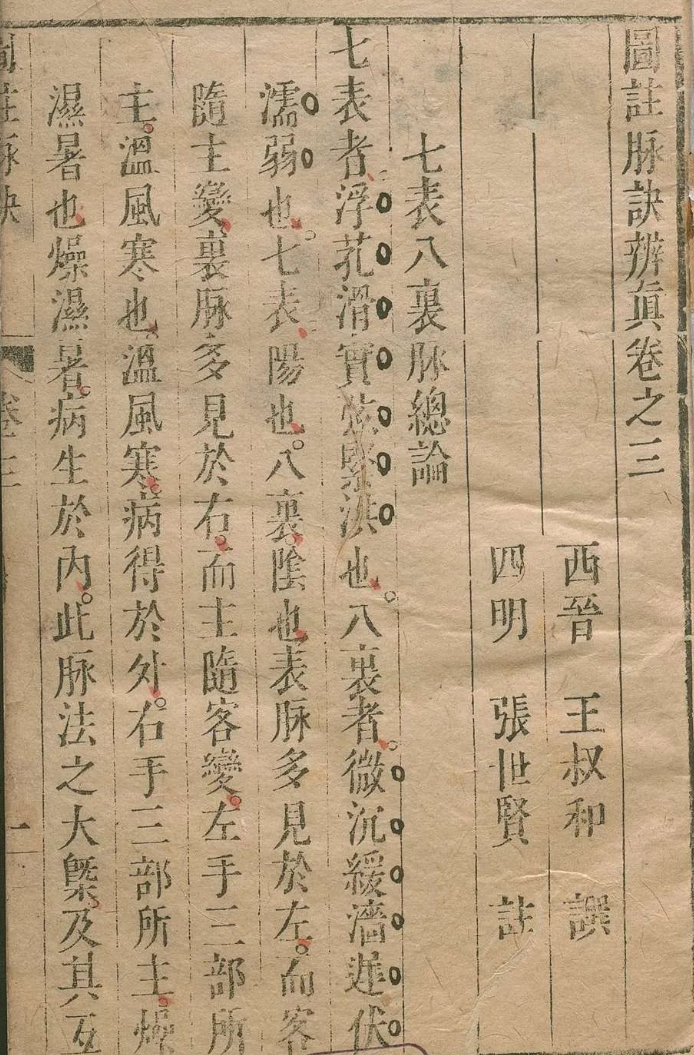 圖註脉訣辨真卷之三
西晉 王叔和 譔
四明 張世賢 註
七表八裏脉總論
七表者浮芤滑實弦緊洪也。八裏者。微沉緩濇遲伏
濡弱也。七表陽也。八裏陰也表脉多見於左。而客
隨主變。裏脉多見於右。而主隨客變。左手三部所
主。溫風寒也溫風寒。病得於外。右手三部所主燥
濕暑也燥濕暑。病生於內。此脉法之大槩。及其互
卷三
一